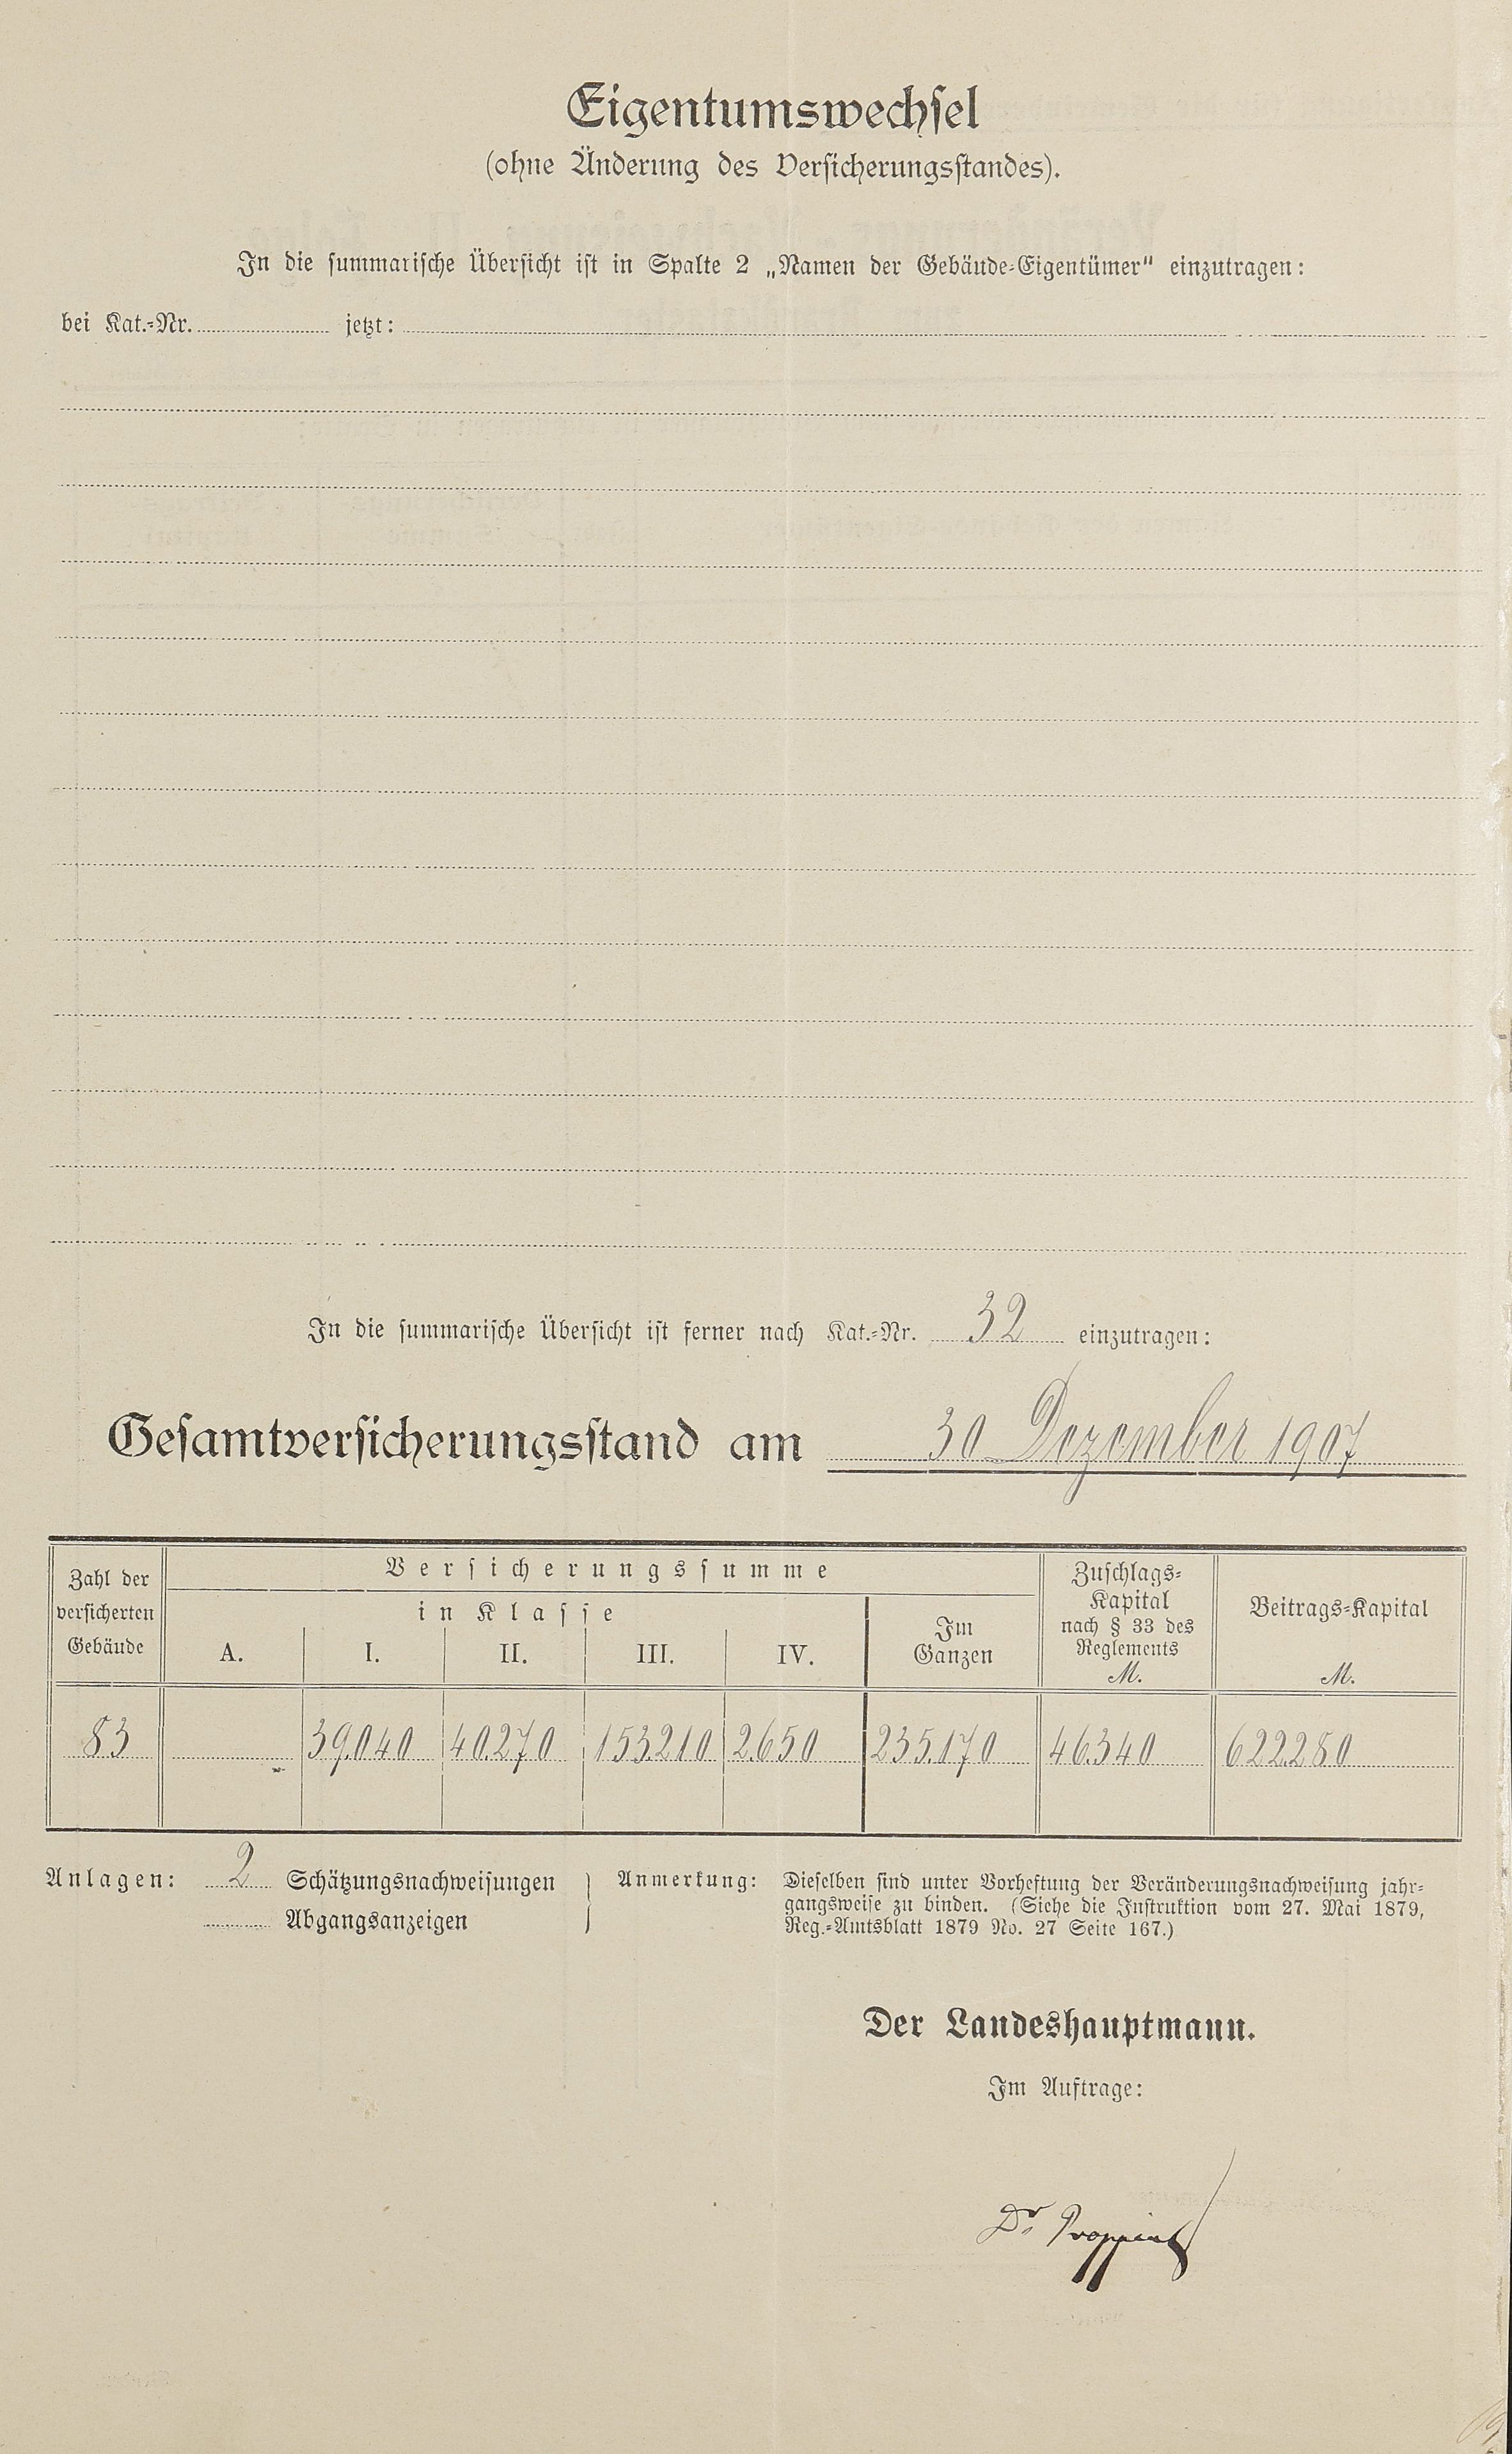 Eigentumswechsel
(ohne Änderung des Versicherungsstandes).
In die summarische Übersicht ist in Spalte 2 „Namen der Gebäude-Eigentümer" einzutragen:
bei Kat.-Nr. jetzt:
In die summarische Übersicht ist ferner nach Kat.-Nr. 32 einzutragen:
Gesamtversicherungsstand am 30 Dezember 1907
Zahl der versicherten Gebäude
Versicherungssumme
in Klasse
A. I. II. III. IV.
Im Ganzen
Zuschlags-Kapital nach § 33 des Reglements M.
Beitrags-Kapital M.
83 39.040 40.270 153.210 2.650 235.170 46.340 622.280
Anlagen: 2 Schätzungsnachweisungen
Abgangsanzeigen
Anmerkung: Dieselben sind unter Vorheftung der Veränderungsnachweisung jahr-
gangsweise zu binden. (Siehe die Instruktion vom 27. Mai 1879,
Reg.-Amtsblatt 1879 No. 27 Seite 167.)
Der Landeshauptmann.
Im Auftrage:
Dr.